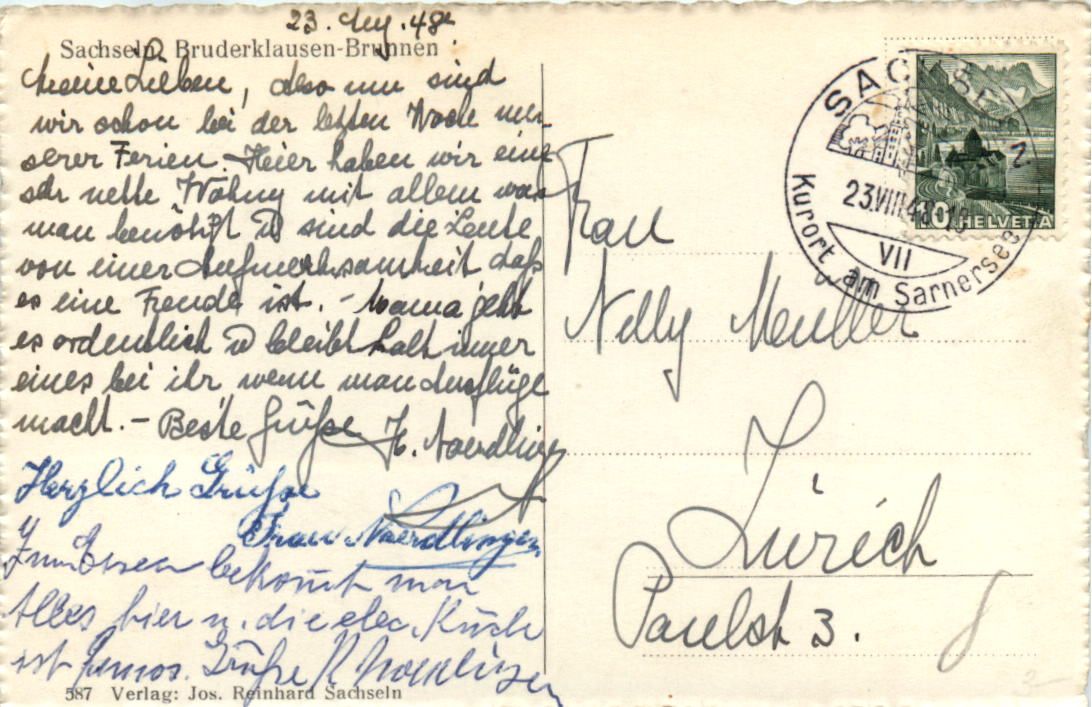 23. Aug. 48.
Sachseln, Bruderklausen-Brunnen
Meine Lieben, also nun sind
wir schon bei der letzten Woche un-
serer Ferien. Heier haben wir eine
sehr nette Wohng mit allem was
man benötigt u sind die Leute
von einer Aufmerksamkeit daß
es eine Freude ist. – Mama geht
es ordentlich u bleibt halt imer
eines bei ihr wenn man Ausflüge
macht. – Beste Grüße H. Noerdlinger
Herzlich Grüße
Frau Noerdlinger
Zum Essen bekomt man
Alles hier u. die elec. Küche
ist famos. Grüße R Noerdlinger
587 Verlag: Jos. Reinhard Sachseln
SACHSELN
23.VIII.48
VII
Kurort am Sarnersee
10 HELVETIA
Frau
Nelly Meuller
Zürich
Paulst 3.
3.-